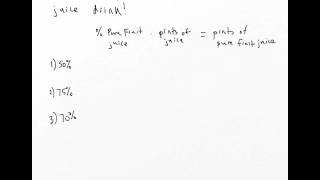 juice drink!
% Pure Fruit juice · pints of juice = pints of pure fruit juice
1) 50%
2) 75%
3) 70%